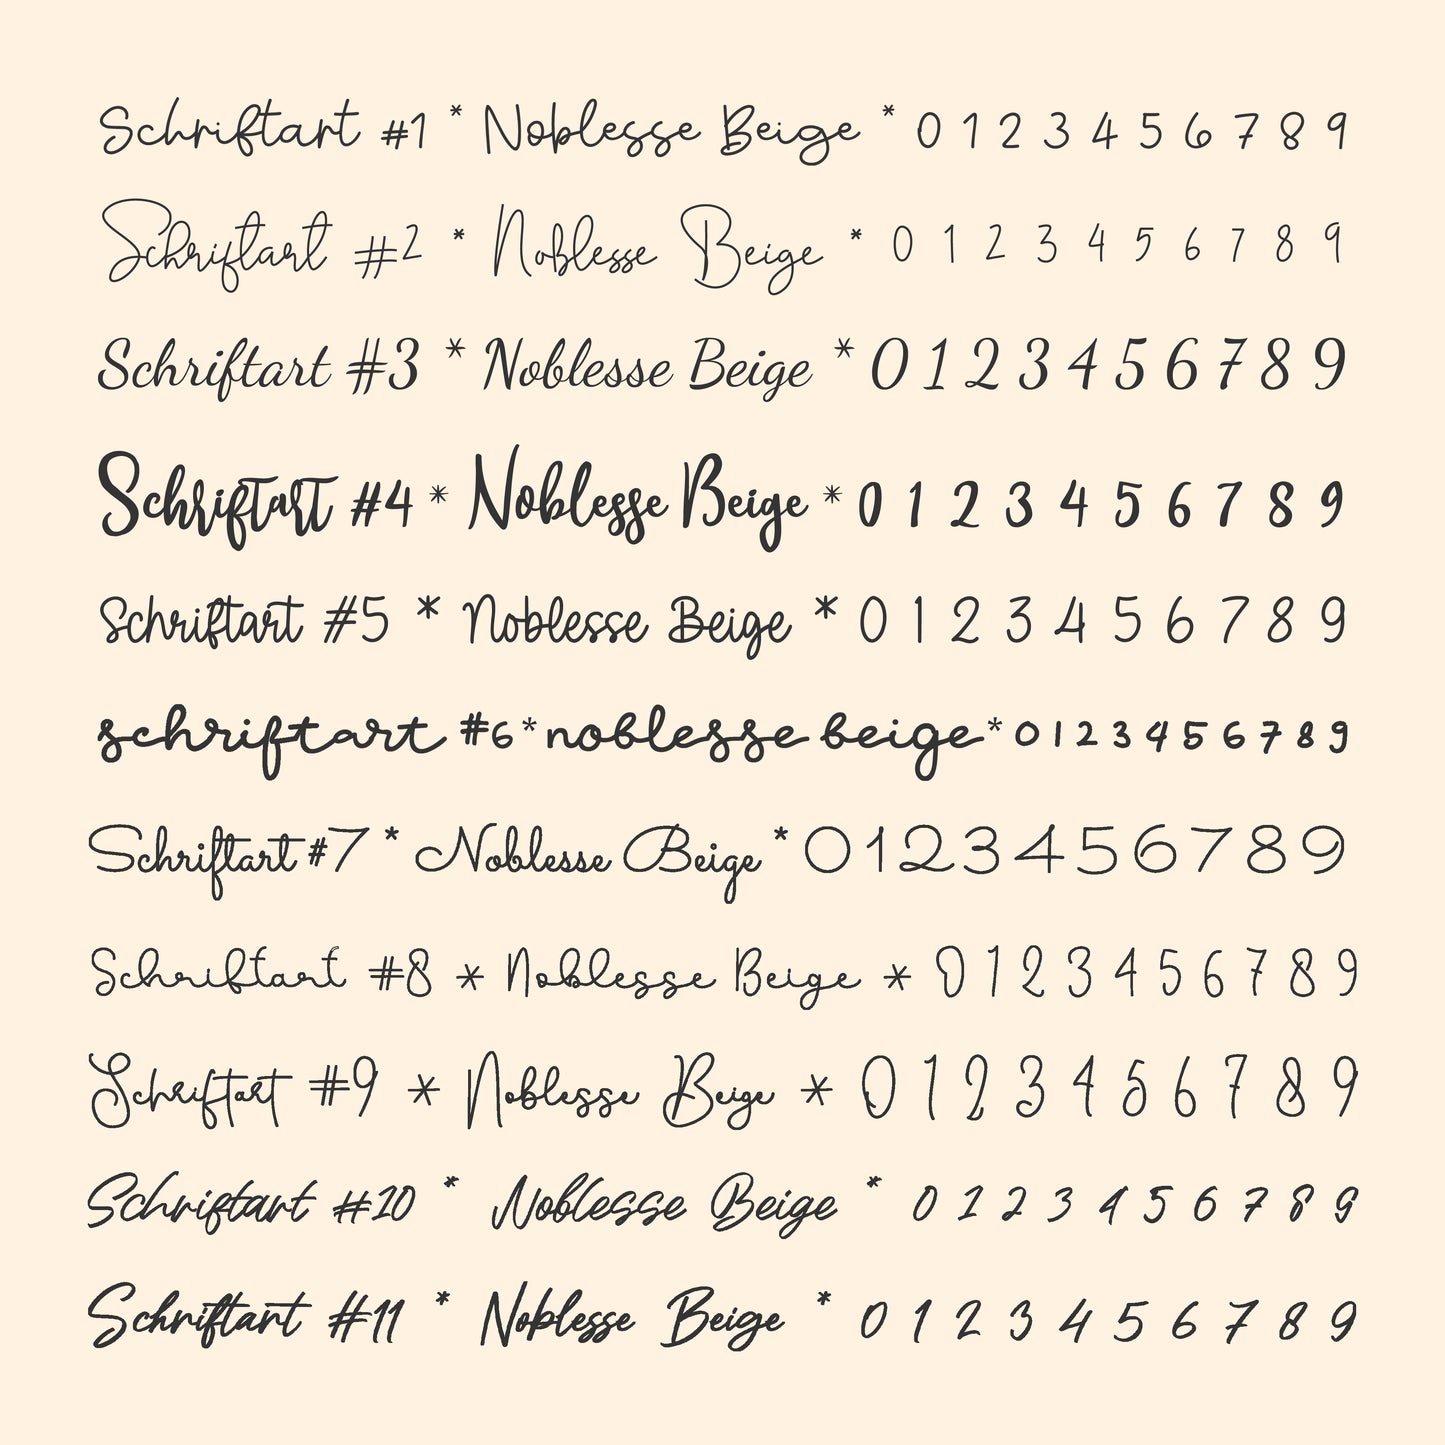 Schriftart #1 * Noblesse Beige * 0 1 2 3 4 5 6 7 8 9
Schriftart #2 * Noblesse Beige * 0 1 2 3 4 5 6 7 8 9
Schriftart #3 * Noblesse Beige * 0 1 2 3 4 5 6 7 8 9
Schriftart #4 * Noblesse Beige * 0 1 2 3 4 5 6 7 8 9
Schriftart #5 * Noblesse Beige * 0 1 2 3 4 5 6 7 8 9
schriftart #6 * noblesse beige * 0 1 2 3 4 5 6 7 8 9
Schriftart #7 * Noblesse Beige * 0 1 2 3 4 5 6 7 8 9
Schriftart #8 * Noblesse Beige * 0 1 2 3 4 5 6 7 8 9
Schriftart #9 * Noblesse Beige * 0 1 2 3 4 5 6 7 8 9
Schriftart #10 * Noblesse Beige * 0 1 2 3 4 5 6 7 8 9
Schriftart #11 * Noblesse Beige * 0 1 2 3 4 5 6 7 8 9